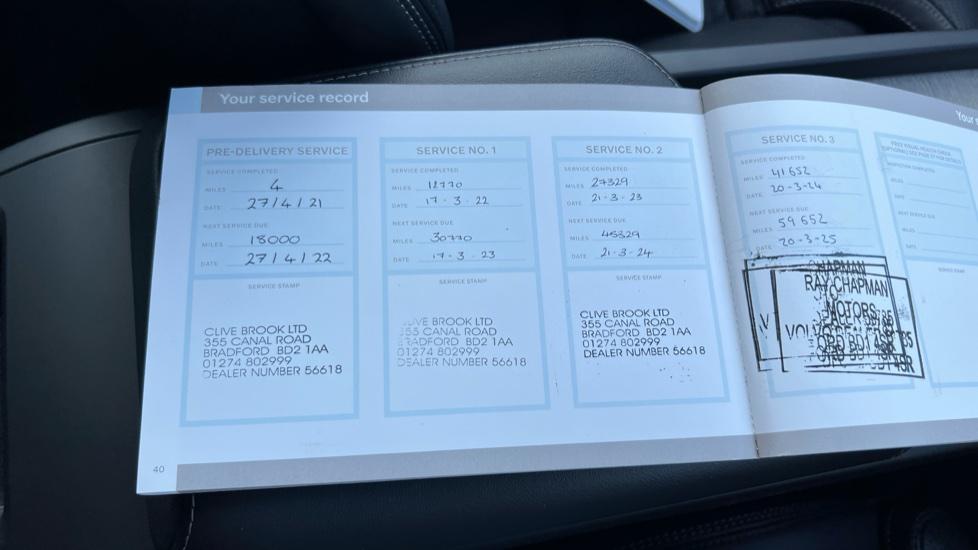 Your service record
PRE-DELIVERY SERVICE
SERVICE COMPLETED
MILES 4
DATE 27/4/21
NEXT SERVICE DUE
MILES 18000
DATE 27/4/22
SERVICE STAMP
CLIVE BROOK LTD
355 CANAL ROAD
BRADFORD BD2 1AA
01274 802999
DEALER NUMBER 56618
SERVICE NO. 1
SERVICE COMPLETED
MILES 12770
DATE 17-3-22
NEXT SERVICE DUE
MILES 30770
DATE 17-3-23
SERVICE STAMP
CLIVE BROOK LTD
355 CANAL ROAD
BRADFORD BD2 1AA
01274 802999
DEALER NUMBER 56618
SERVICE NO. 2
SERVICE COMPLETED
MILES 27329
DATE 21-3-23
NEXT SERVICE DUE
MILES 45329
DATE 21-3-24
SERVICE STAMP
CLIVE BROOK LTD
355 CANAL ROAD
BRADFORD BD2 1AA
01274 802999
DEALER NUMBER 56618
40
Your
SERVICE NO. 3
SERVICE COMPLETED
MILES 41652
DATE 20-3-24
NEXT SERVICE DUE
MILES 59652
DATE 20-3-25
CHAPMAN
RAY CHAPMAN
MOTORS
MILES
DATE
NEXT SERVICE DUE
MILES
DATE
SERVICE STAMP